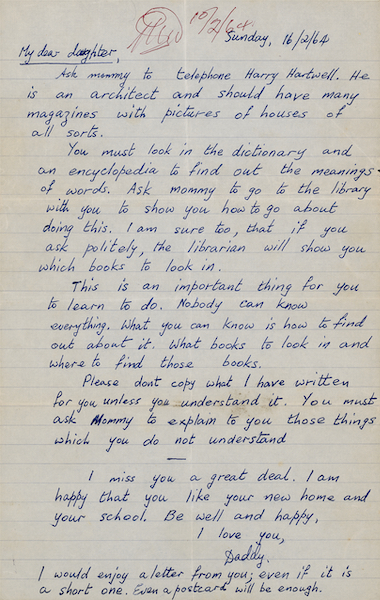 10/2/64.
Sunday, 16/2/64
My dear daughter,
Ask mummy to telephone Harry Hartwell. He
is an architect and should have many
magazines with pictures of houses of
all sorts.
You must look in the dictionary and
an encyclopedia to find out the meanings
of words. Ask mommy to go to the library
with you to show you how to go about
doing this. I am sure too, that if you
ask politely, the librarian will show you
which books to look in.
This is an important thing for you
to learn to do. Nobody can know
everything. What you can know is how to find
out about it. What books to look in and
where to find those books.
Please dont copy what I have written
for you unless you understand it. You must
ask Mommy to explain to you those things
which you do not understand
—
I miss you a great deal. I am
happy that you like your new home and
your school. Be well and happy,
I love you,
Daddy.
I would enjoy a letter from you; even if it is
a short one. Even a postcard will be enough.